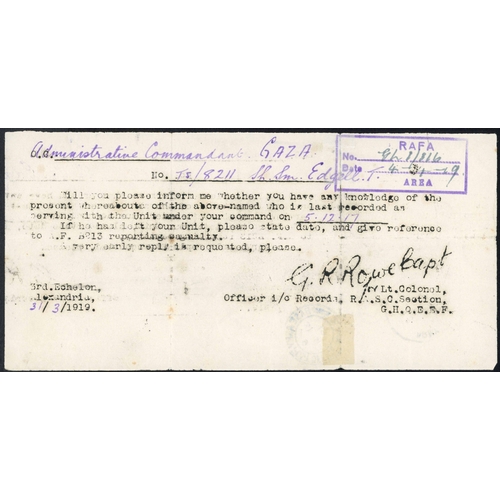 Administrative Commandant GAZA
RAFA
No.
Date 4-3-19
AREA
No. TS/8211 Sh. Sm. Edgell T.
Will you please inform me whether you have any knowledge of the
present whereabouts of the above-named who is last recorded as
serving with the Unit under your command on 5-12-17
If he has left your Unit, please state date, and give reference
to A.F. B213 reporting casualty.
A very early reply is requested, please.
G. R. Rowe Capt
3rd. Echelon, for Lt. Colonel,
Alexandria, Officer i/c Records, R.A.S.C. Section,
31/3/1919. G.H.Q.E.E.F.